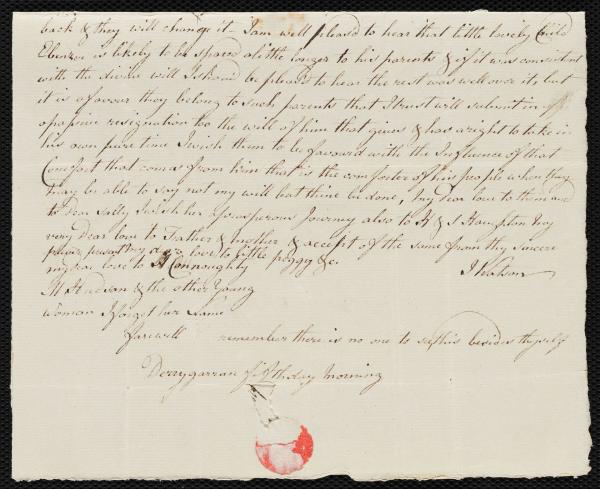 back & they will change it - I am well pleasd to hear that little lovely Child
Ebenzor is likely to be spared a little longer to his parents & if it was consistent
with the divine will I shoud be pleasd to hear the rest was well over it, but
it is a favour they belong to such parents that I trust will submit in
a passive resignation too the will of him that gives & has a right to take in
his own pure time I wish them to be favoured with the Influence of that
Comfort that comes from him that is the comforter of his people when they
may be able to say not my will but thine be done, my dear love to them and
to Dear Sally I wish her a prosperous Journey also to H & S Haughton my
very Dear love to Father & mother, & accept of the same from thy sincere
love to little peggy &c.
my dear love to H Connoughty
J Watson
M Hudson & the other Young
Woman I forget her name
farewell remember there is no one to see this besides thyself
Derrygarran fifth day Morning